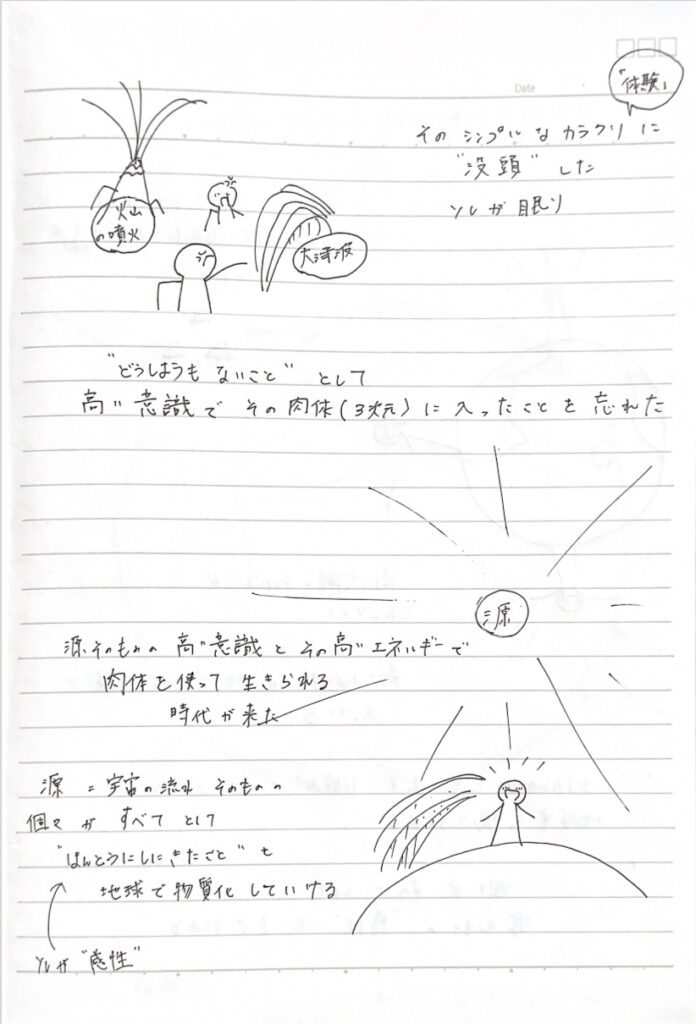 Date
「体験」
その シンプル な カラクリ に
"没頭" した
ソレが 眠り
火山
の噴火
大津波
"どうしようも ないこと" として
高い意識で その肉体(3次元)に入ったことを忘れた
源
源そのものの 高い意識と その高いエネルギーで
肉体を使って 生きられる
時代が来た
源 = 宇宙の流れ そのものの
個々が すべて として
"ほんとうにしにきたこと" を
地球で物質化していける
ソレが "感性"